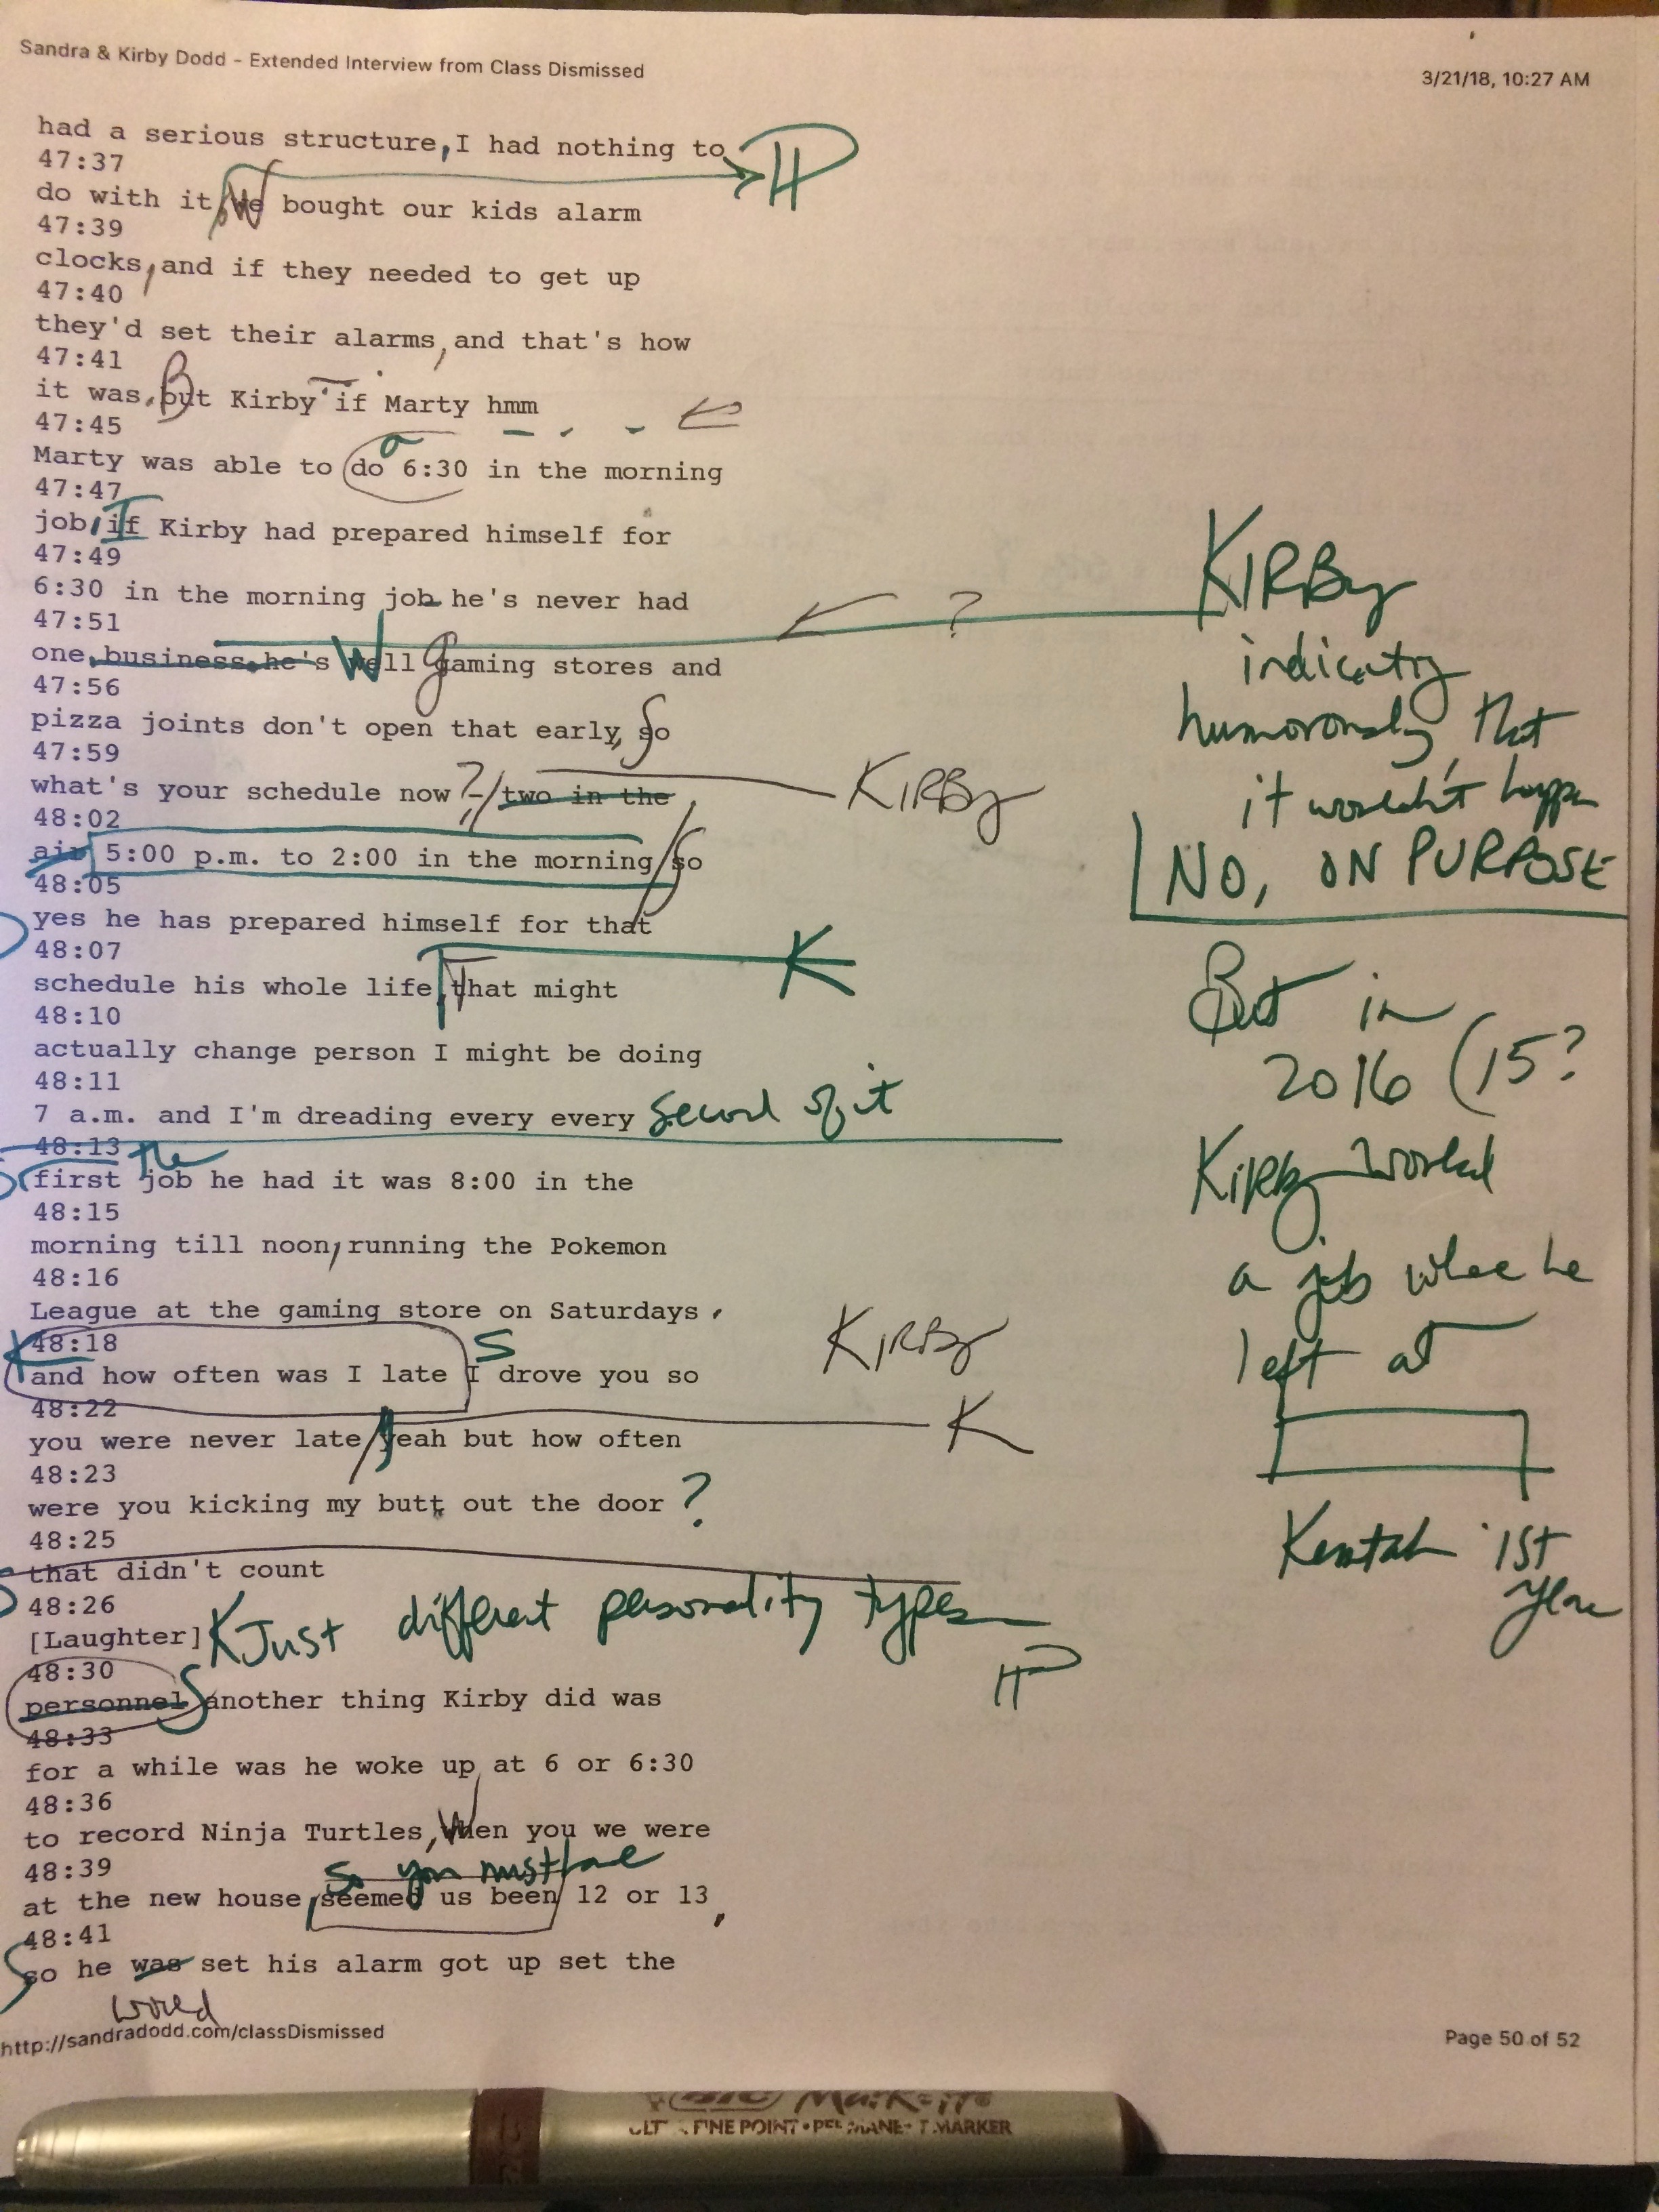 Sandra & Kirby Dodd - Extended Interview from Class Dismissed
3/21/18, 10:27 AM
had a serious structure, I had nothing to
47:37
do with it, We bought our kids alarm
47:39
clocks, and if they needed to get up
47:40
they'd set their alarms, and that's how
47:41
it was. But Kirby if Marty hmm
47:45
Marty was able to do a 6:30 in the morning
47:47
job, If Kirby had prepared himself for
47:49
6:30 in the morning job he's never had
47:51
one, business, he's Well Gaming stores and
?
47:56
pizza joints don't open that early, So
47:59
what's your schedule now? two in the
KIRBy
48:02
air 5:00 p.m. to 2:00 in the morning So
48:05
yes he has prepared himself for that
48:07
K
schedule his whole life, That might
48:10
actually change person I might be doing
48:11
7 a.m. and I'm dreading every every second of it
48:13
S first the job he had it was 8:00 in the
48:15
morning till noon, running the Pokemon
48:16
League at the gaming store on Saturdays,
48:18
KIRBy
K and how often was I late S I drove you so
48:22
you were never late yeah but how often
K
48:23
were you kicking my butt out the door?
48:25
S that didn't count
48:26
[Laughter] K Just different personality types
48:30
personnel S another thing Kirby did was
48:33
for a while was he woke up, at 6 or 6:30
48:36
to record Ninja Turtles, When you we were
48:39
so you must have
at the new house, seemed us been 12 or 13,
48:41
So he was set his alarm got up set the
would
KIRBy
indicating
humorously that
it wouldn't happen
NO, ON PURPOSE
But in
2016 (15?
Kirby worked
a job where he
left at
1st
year
http://sandradodd.com/classDismissed
Page 50 of 52
BIC Mark-it
FINE POINT • PERMANENT MARKER